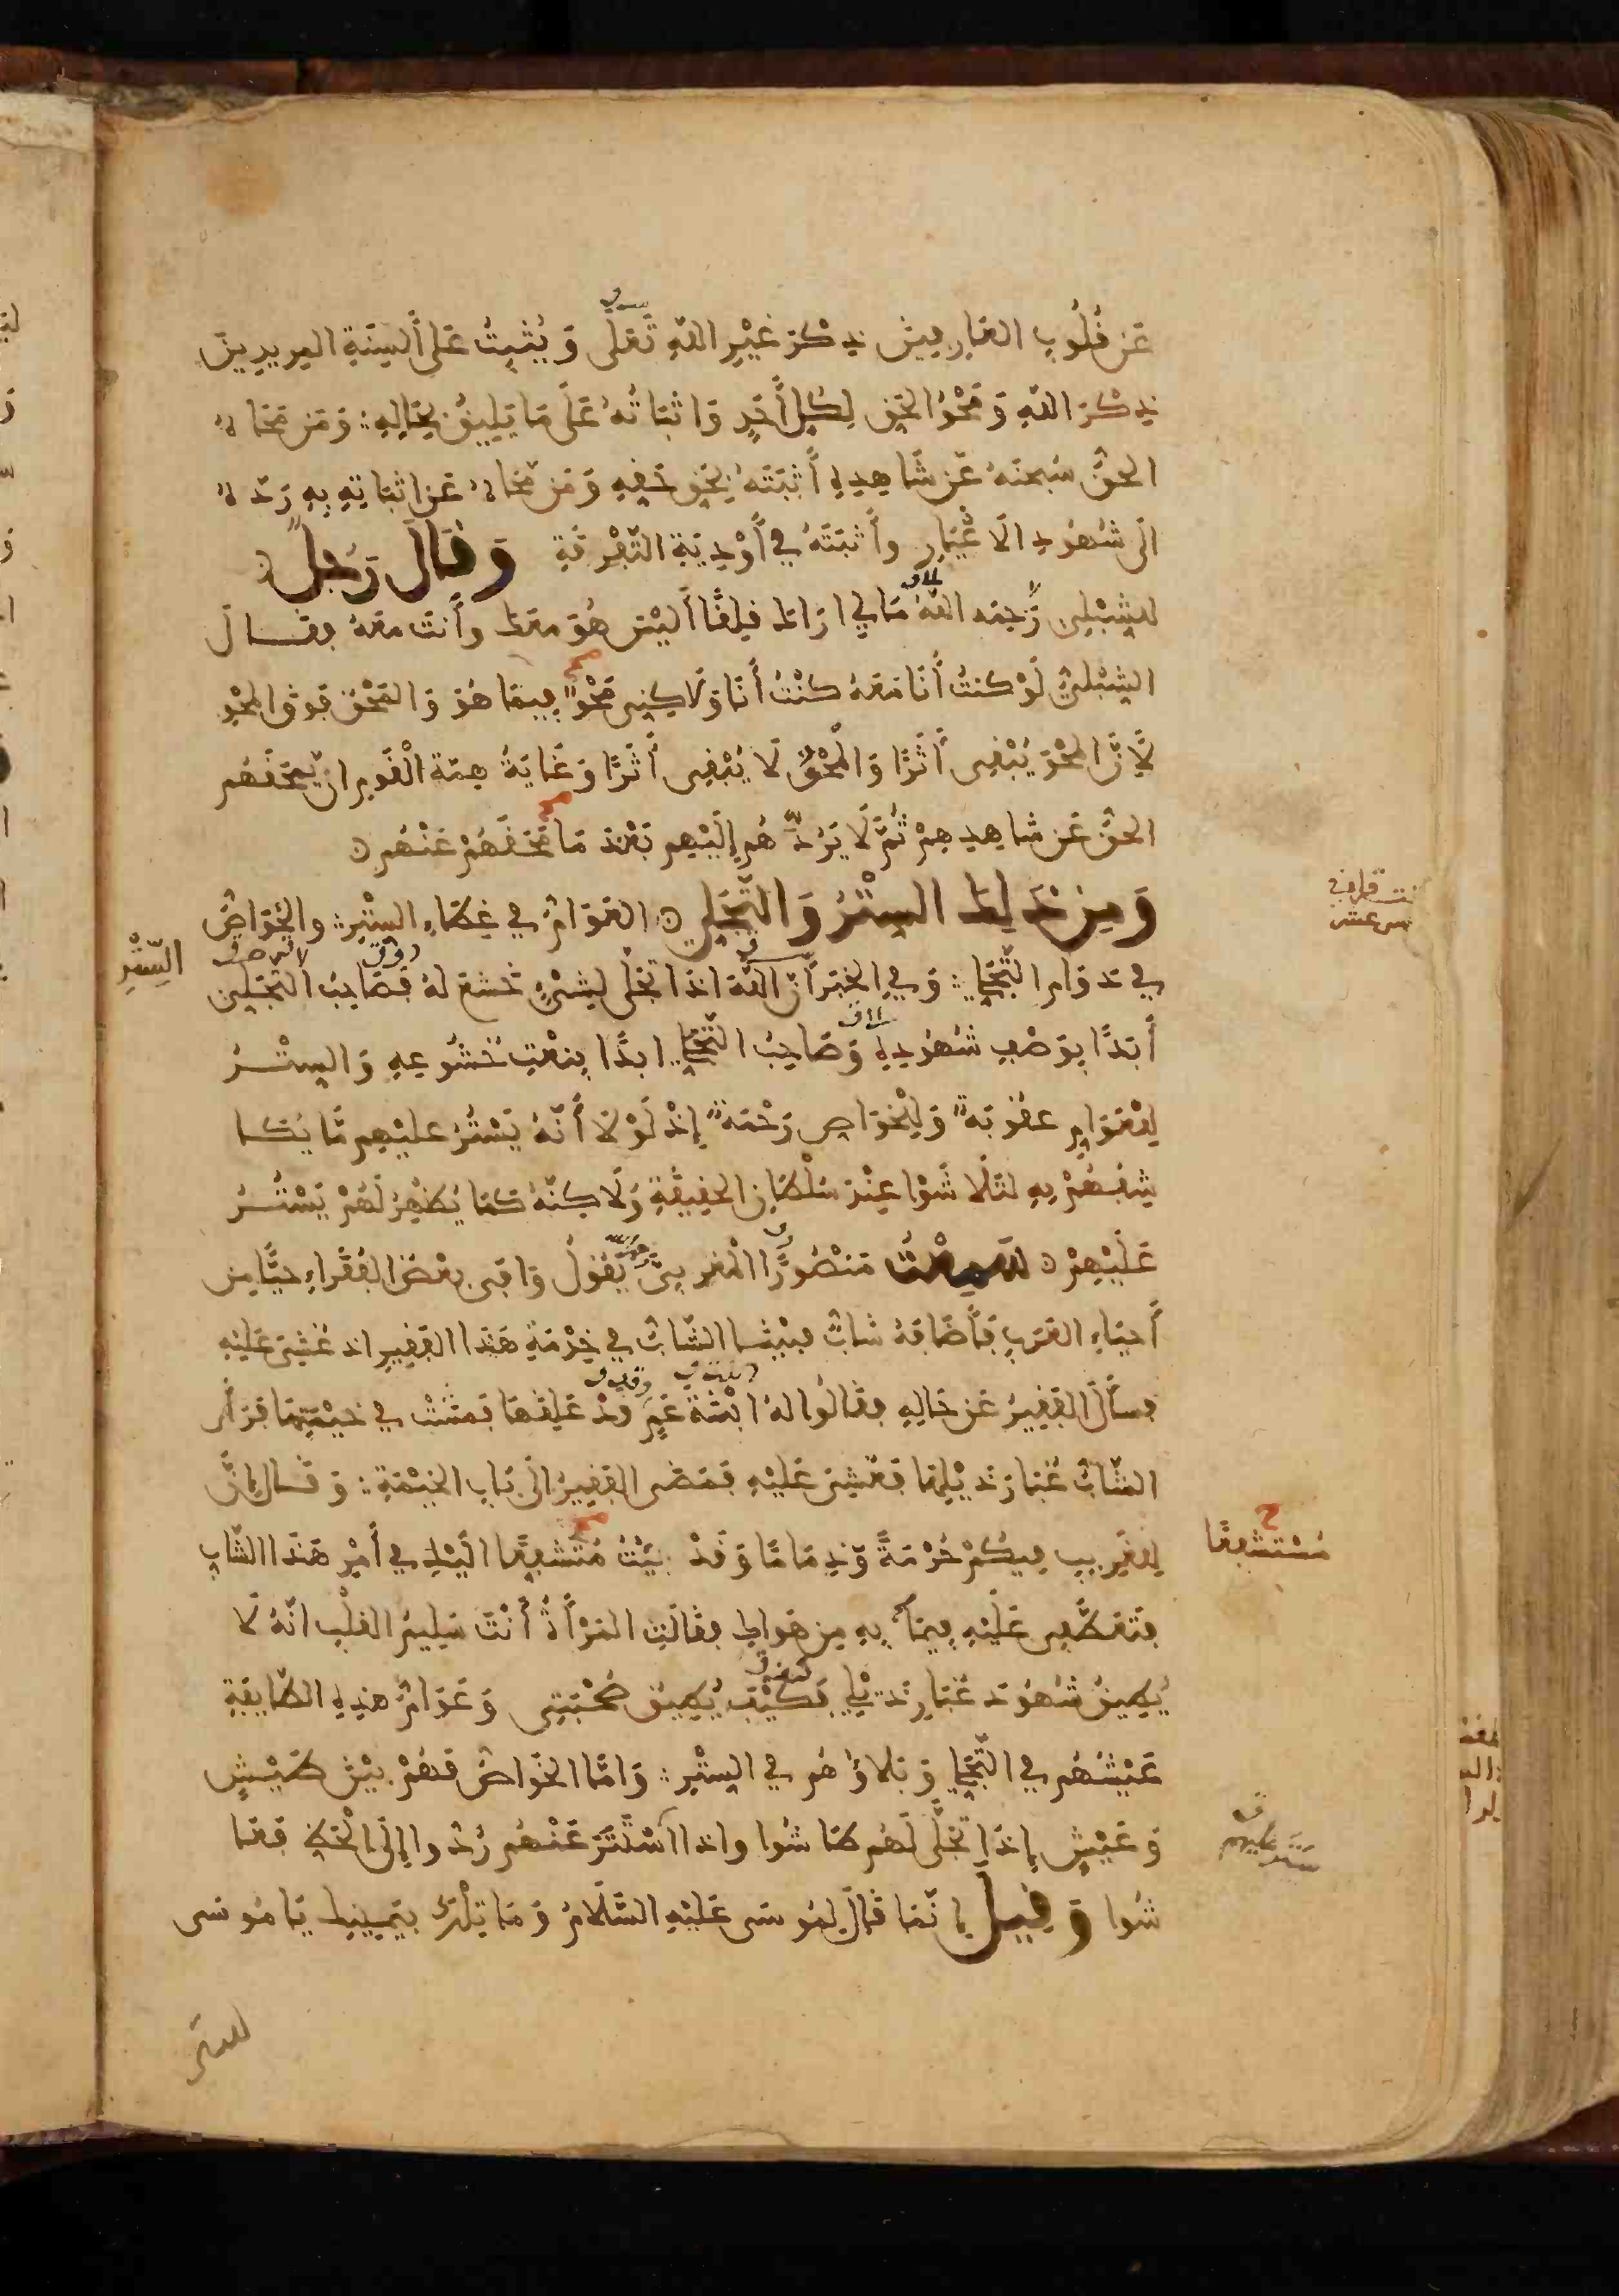 عَن قُلُوبِ العَارِفِينَ ذِكْرَ غَيْرِ اللَّهِ تَعَلَى وَيُثْبِتُ عَلَى أَلْسِنَةِ المُرِيدِينَ
ذِكْرَ اللَّهِ وَمَحْوُ الحَقِّ لِكُلِّ أَحَدٍ وَاثْبَاتُهُ عَلَى مَا يَلِيقُ بِحَالِهِ وَمَن مَحَاهُ
الحَقُّ سُبحنَهُ عَن شَاهِدِهِ أَثْبَتَهُ بِحَقِّ حَقِّهِ وَمَن مَحَاهُ عَن اثْبَاتِهِ بِهِ رَدَّهُ
الَى شُهُودِ الَاغْيَارِ وأَثْبَتَهُ فِي أَوْدِيَةِ التَّفْرِقَةِ وَقَالَ رَجُلٌ
للشِّبْلِي رَحِمَه اللَّهُ مَا لِي اراكَ قَلِقًا أَلَيْسَ هُوَ معَكَ وأَنتَ معَهُ فقال
الشِّبْلِيُّ لَوْ كُنتُ أَنَا مَعَهُ كُنْتُ أَنَا وَلَاكِنِّي مَحْوٌ فِيمَا هُوَ وَالمَحْقُ فَوقَ المَحْوِ
لَأِنَّ المَحْوَ يُبْقِي أَثَرًا وَالْمَحْقُ لَا يُبْقِي أَثَرًا وَغَايَةُ هِمَّةِ الْقَومِ ان يَمحَقَهُم
الحَقُّ عَن شَاهِدِهِمْ ثُمَّ لَا يَرُدُّهُم إِلَيْهِم بَعْدَ مَا مَحَقَهُمْ عَنْهُم
وَمِنْ ذَلِكَ السِّتْرُ وَالتَّجَلِّي العَوَامُّ فِي غِطَاءِ السِّتْرِ والخَوَاصُّ
السِّتْرِ
فِي دَوَامِ التَّجَلِّي وَفِي الخَبَرِ أَنَّ اللَّهَ اذَا تَجَلَّى لِشَيْءٍ خَشَعَ لَهُ فَصَاحِبُ التَّجَلِّي
أَبَدًا بِوَصْفِ شُهُودِهِ وَصَاحِبُ التَّجَلِّي ابدًا بِنَعْتِ خُشُوعِهِ وَالسِّتْرُ
لِلْعَوَامِ عقُوبَةٌ وَلِلْخَوَاصِ رَحْمَةٌ إِذْ لَوْلَا أَنَّهُ يَسْتُرُ عليْهِم مَّا يُكَا
شِفُهُمْ بِهِ لتَلَاشَوْا عِنْدَ سُلْطَانِ الحَقِيقَةِ وَلَاكِنَّهُ كَمَا يُظْهِرُ لَهُمْ يَسْتُرُ
عَلَيْهِمْ سَمِعْتُ مَنْصُورًا الْمَغرِبِيَّ يَقُولُ وَافَى بعْضُ الفُقَراءِ حيًّا مِن
أَحيَاءِ العَرَبِ فَأَضَافَهُ شَابٌّ فبيْنَما الشَّابُّ فِي خِدْمَةِ هَذَا الفَقِيرِ اذ غُشِيَ عَلَيْهِ
فسأَلَ الفَقِيرُ عَن حَالِهِ فقَالُوا لهُ ابْنَةُ عَمٍّ وقدْ عَلِقَهَا فمَشَتْ فِي خيْمَتِهَا فَرَأَى
الشَّابُّ غُبَارَ ذَيْلِهَا فَغُشِيَ عَلَيْهِ فَمَضَى الفَقِيرُ الَى بَابِ الخَيْمَةِ وَقَالَ إِنَّ
لِلغَرِيبِ فِيكُمْ حُرْمَةً وَذِمَامًا وَقَدْ جِئْتُ مُتَشفِعًا الَيْكِ فِي أَمْرِ هَذَا الشَّابِ
مُسْتَشْفِعًا
فتَعَطَّفِي عَلَيْهِ فِيمَا بِهِ مِن هَواكِ فقَالَتِ المَرْأَةُ أَنْتَ سَلِيمُ القلْبِ انَّهُ لَا
يُطِيقُ شُهُودَ غُبَارِ ذَيْلِي فَكَيْفَ يُطِيقُ صُحْبَتِي وَعَوَامُّ هَذِهِ الطَّايِفَةِ
عَيْشُهُم فِي التَّجَلِّي وَبَلَاؤُهُم فِي السِّتْرِ وَامَّا الخَوَاصُّ فَهُمْ بيْنَ طَيْشٍ
وَعَيْشٍ إِذَا تَجَلَّى لَهُم طَاشُوا واذا اسْتَتَرَ عَنْهُم رُدُّوا إِلَى الْحَظِّ فَعَا
شُوا وَقِيلَ إِنَّمَا قَالَ لِمُوسَى عَلَيْهِ السَّلَامُ وَمَا تِلْكَ بيَمِينِكَ يَا مُوسَى